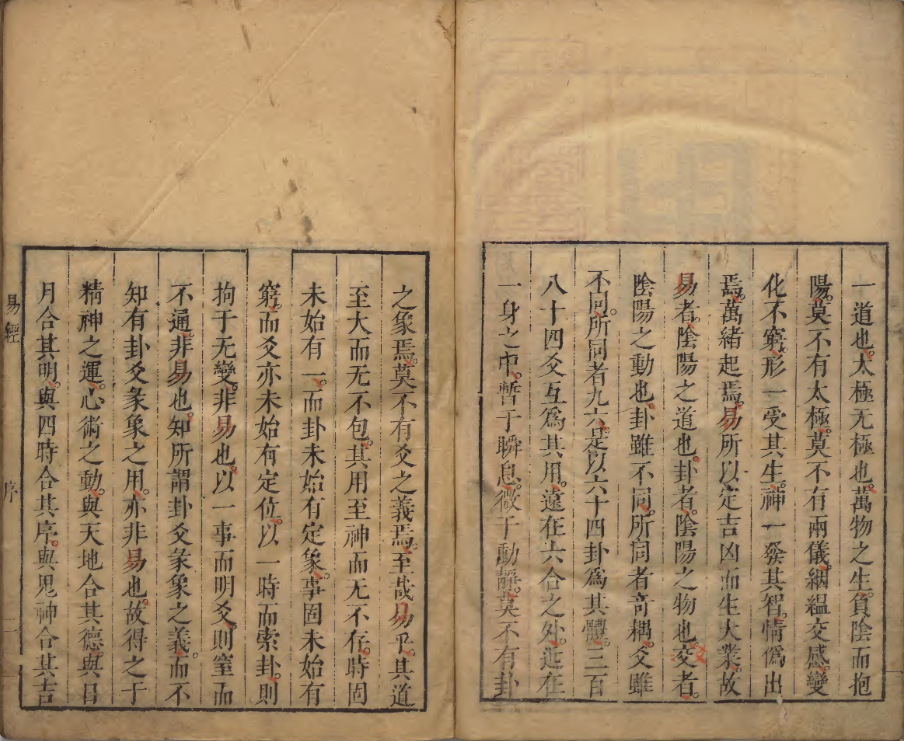 一道也太極无極也萬物之生負陰而抱
陽莫不有太極莫不有兩儀絪縕交感變
化不窮形一受其生神一發其智情僞出
焉萬緒起焉易所以定吉凶而生大業故
易者陰陽之道也卦者陰陽之物也交者
陰陽之動也卦雖不同所同者竒耦爻雖
不同所同者九六是以六十四卦爲其體三百
八十四爻互爲其用遠在六合之外近在
一身之中暫于瞬息微于動靜莫不有卦
之象焉莫不有爻之義焉至哉易乎其道
至大而无不包其用至神而无不存時固
未始有一而卦未始有定象事固未始有
窮而爻亦未始有定位以一時而索卦則
拘于无變非易也以一事而明爻則窒而
不通非易也知所謂卦爻彖象之義而不
知有卦爻彖象之用亦非易也故得之于
精神之運心術之動與天地合其德與日
月合其明與四時合其序與鬼神合其吉
易經 序 二